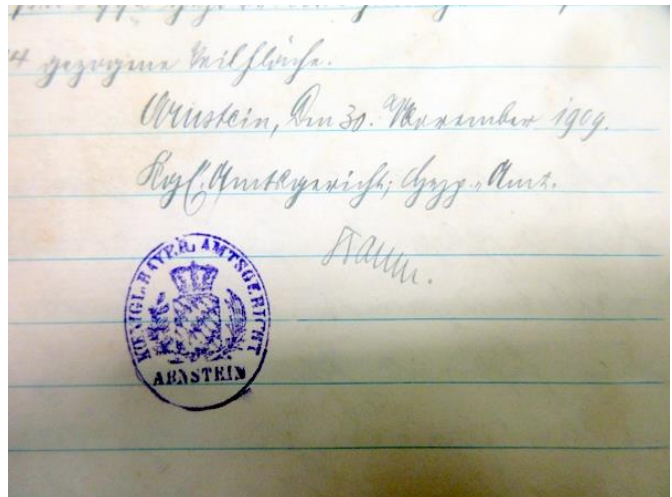 gezogene Teilfläche.
Arnstein, den 30. November 1909.
Kgl. Amtsgericht, Hyp.-Amt.
KOENIGL. BAYER. AMTSGERICHT
ARNSTEIN